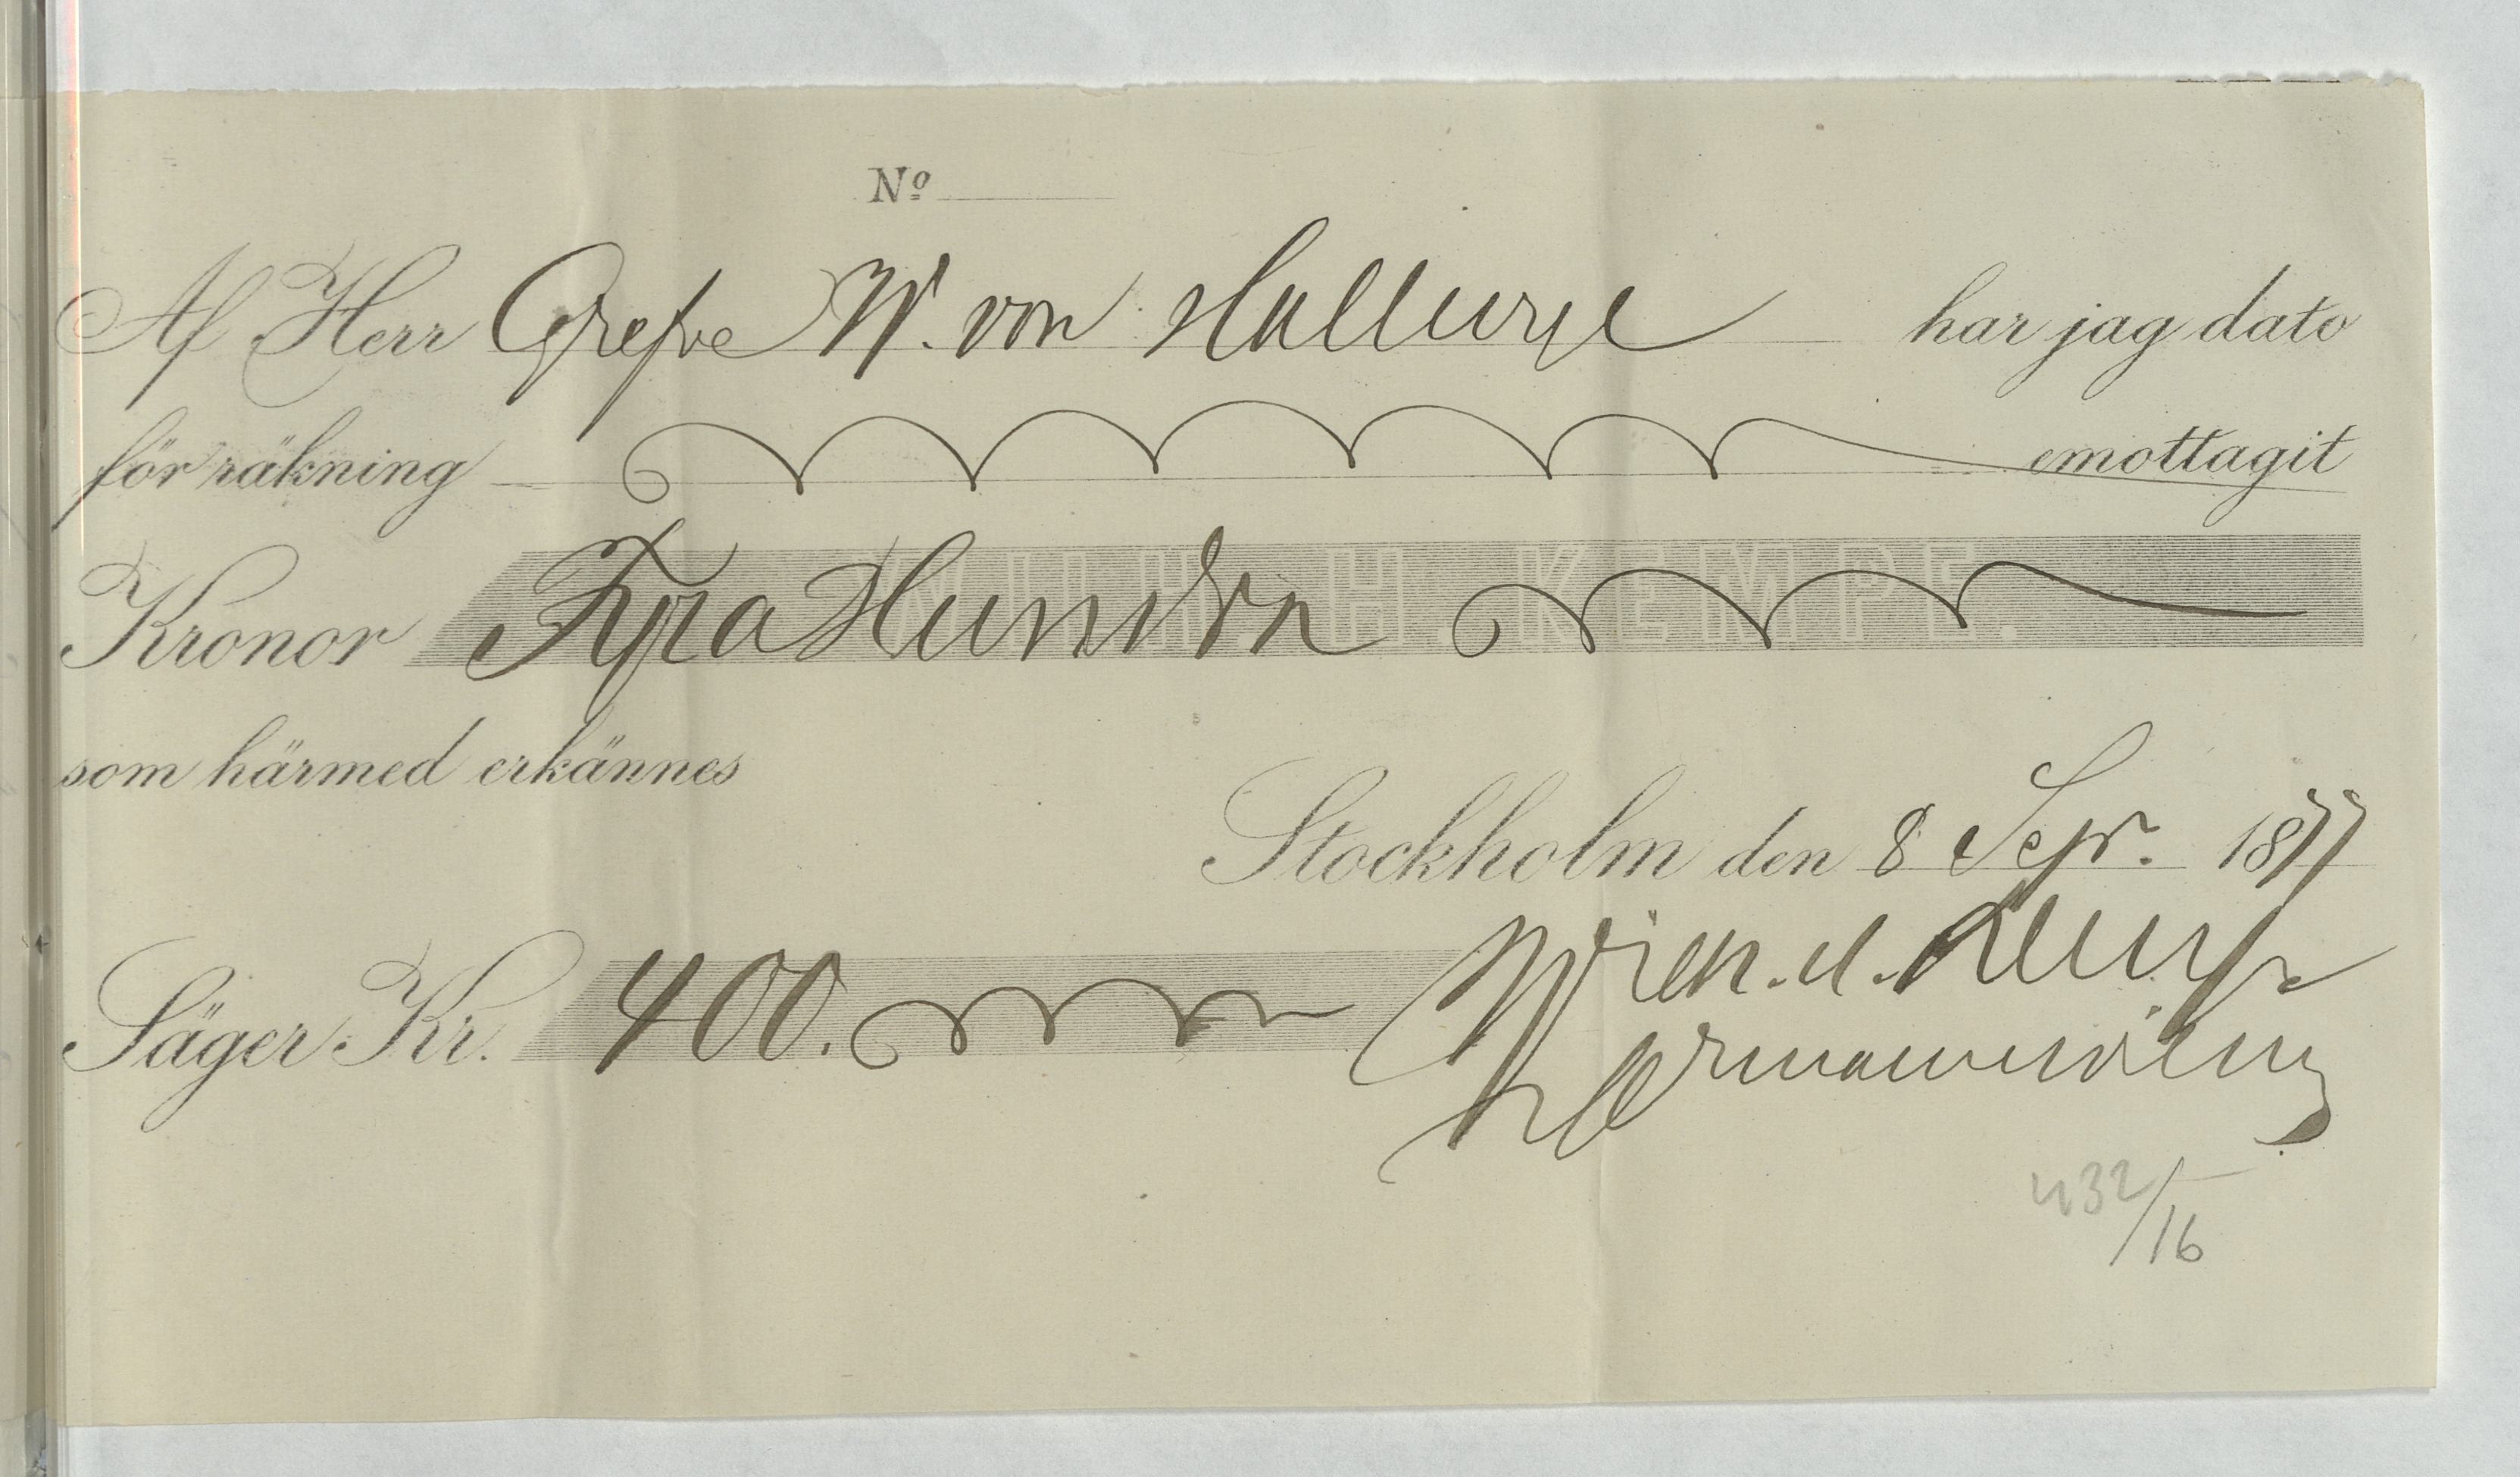 Nº
Af Herr Grefve W. von Hallwyl har jag dato
för räkning emottagit
Kronor Fyra Hundra
WILH. H. KEMPE.
som härmed erkännes
Stockholm den 8 Sept. 1877
Säger Kr. 400. Wilh. H. Kempe
432/16